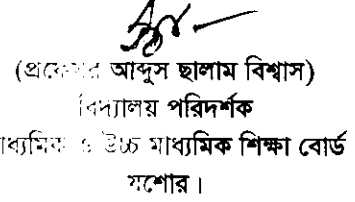 (প্রফেসর আব্দুস ছালাম বিশ্বাস)
বিদ্যালয় পরিদর্শক
মাধ্যমিক ও উচ্চ মাধ্যমিক শিক্ষা বোর্ড
যশোর।